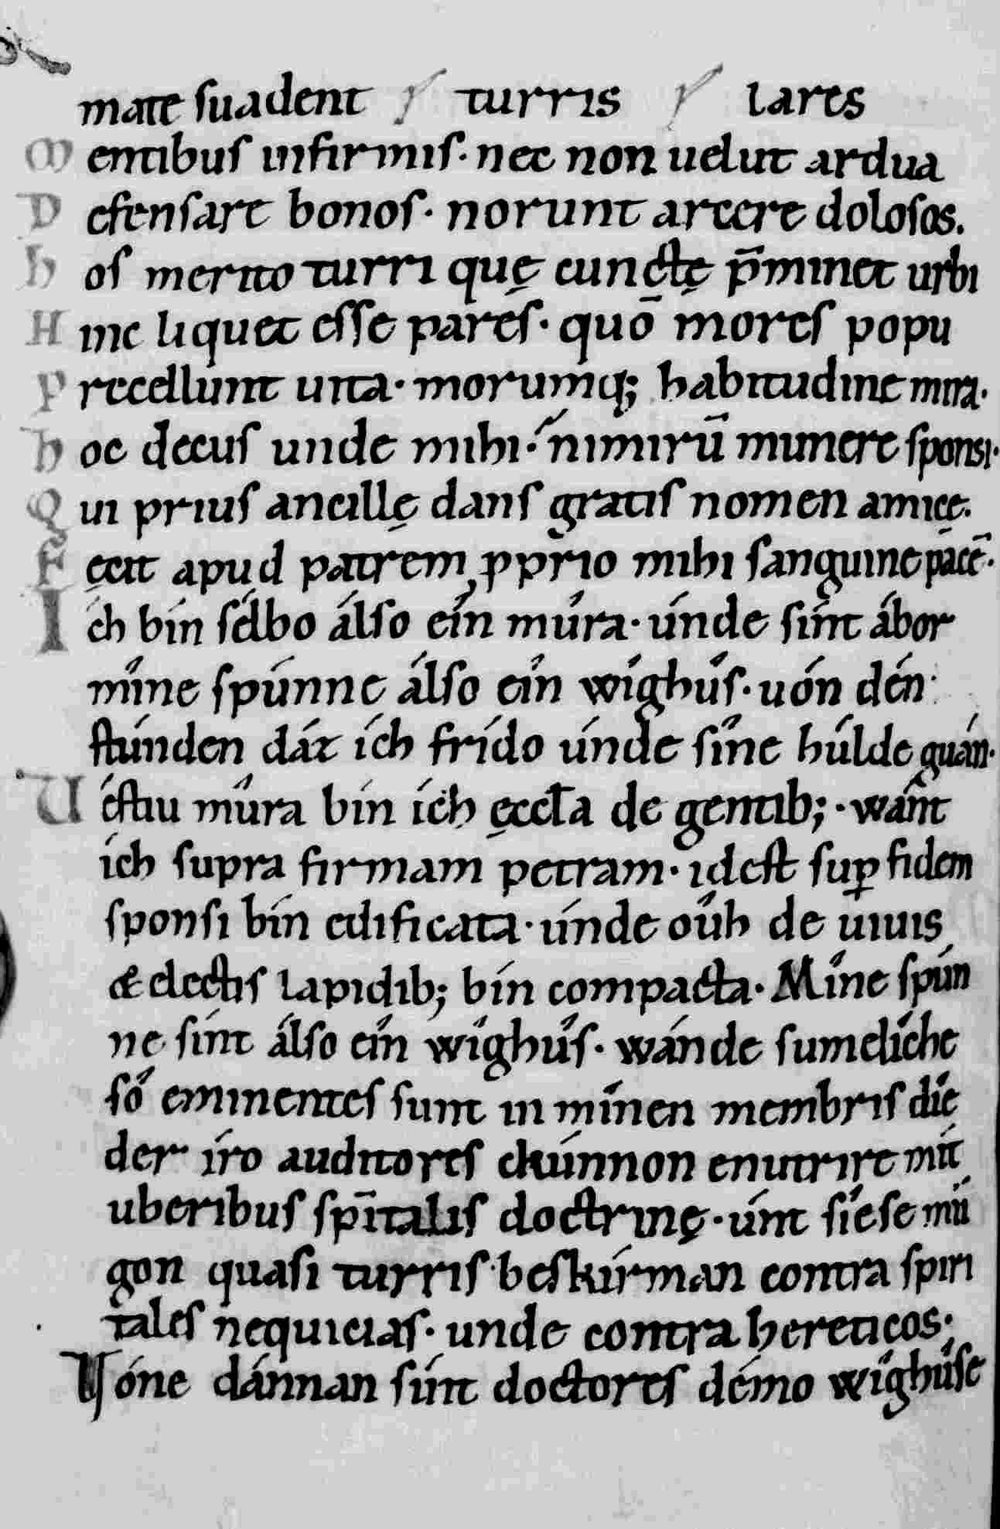 mate ſuadent turris lares
Mentibus infirmiſ. nec non uelut ardua
Defenſare bonoſ. norunt arcere doloſos.
hoſ merito turri quę cunctę p̄minet urbi
Hinc liquet eſſe pareſ. quō moreſ popu
precellunt uita. morumq; habitudine mira.
hoc decuſ unde mihi. nimirū munere ſponsi.
Qui priuſ ancillę danſ gratiſ nomen amicę.
Fecit apud patrem ꝓprio mihi ſanguine pacē.
Ich bín ſélbo álſo eín mûra. únde ſínt ábor
mîne ſpúnne álſo eín wîghûſ. uón dén
ſtúnden dáz ích frído únde ſîne húlde guán.
Víſtiu mûra bín ích ęccłа de gentib;. wánt
ích ſupra firmam petram. ideſt ſuꝑ fidem
ſponſi bín edificata. únde oûh de uiuis
& electiſ lapidib; bín compacta. Mîne ſpún
ne ſínt álſo eín wîghûſ. wánde ſumelîche
ſô eminenteſ ſunt in mînen membriſ díe
der íro auditoreſ chúnnon enutrire mít
uberibuſ ſpi̅taliſ doctrinę. únt síeſe mú
gon quaſi turriſ beſkírman contra ſpiri
taleſ nequiciaſ. unde contra hereticos;
Vóne dánnan ſínt doctoreſ démo wîghûſe